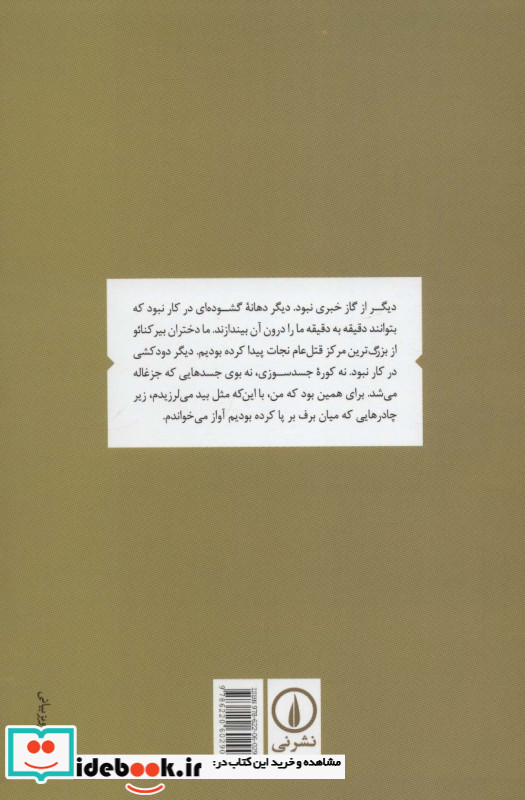 دیگر از گاز خبری نبود. دیگر دهانهٔ گشوده‌ای در کار نبود که
بتوانند دقیقه به دقیقه ما را درون آن بیندازند. ما دختران بیرکنائو
از بزرگ‌ترین مرکز قتل‌عام نجات پیدا کرده بودیم. دیگر دودکشی
در کار نبود. نه کورهٔ جسدسوزی، نه بوی جسدهایی که جزغاله
می‌شد. برای همین بود که من، با این‌که مثل بید می‌لرزیدم، زیر
چادرهایی که میان برف بر پا کرده بودیم آواز می‌خواندم.
نشرنی
مشاهده و خرید این کتاب در:
idebook.ir